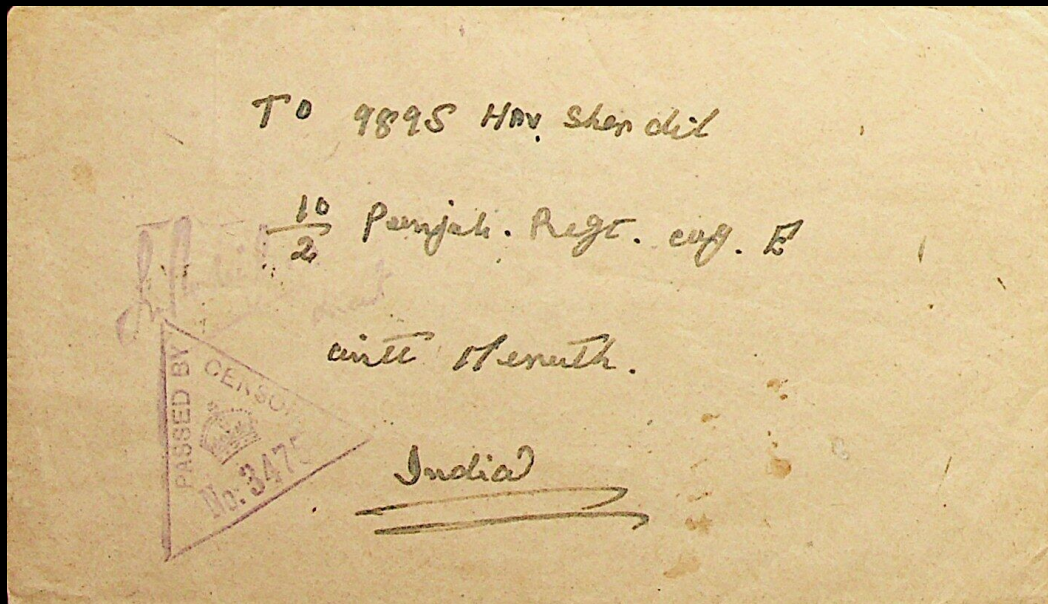 To 9895 HAV. Sher dil
10/2 Punjab. Regt. coy. E
Meruth.
India
PASSED BY CENSOR
No: 3475